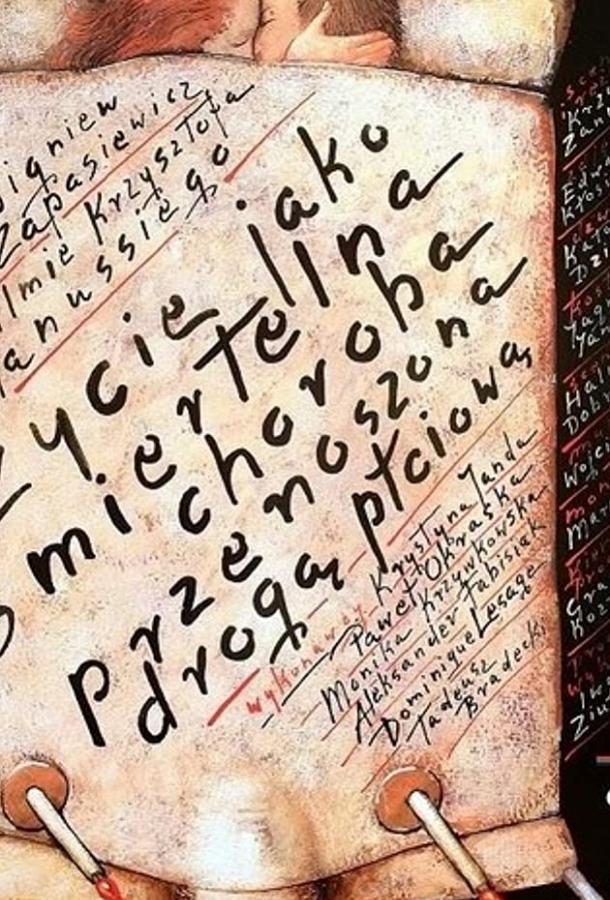 igniew
Zapasiewicz,
lmie Krzysztofa
anussiego
życie jako
śmiertelna
choroba
przenoszona
drogą płciową
wykonawcy Krystyna Janda
Paweł Okraska
Monika Krzywkowska
Aleksander Fabisiak
Dominique Lesage
Tadeusz
Bradecki
Hali
Dob
Wojcie
Mar
Gra
Koz